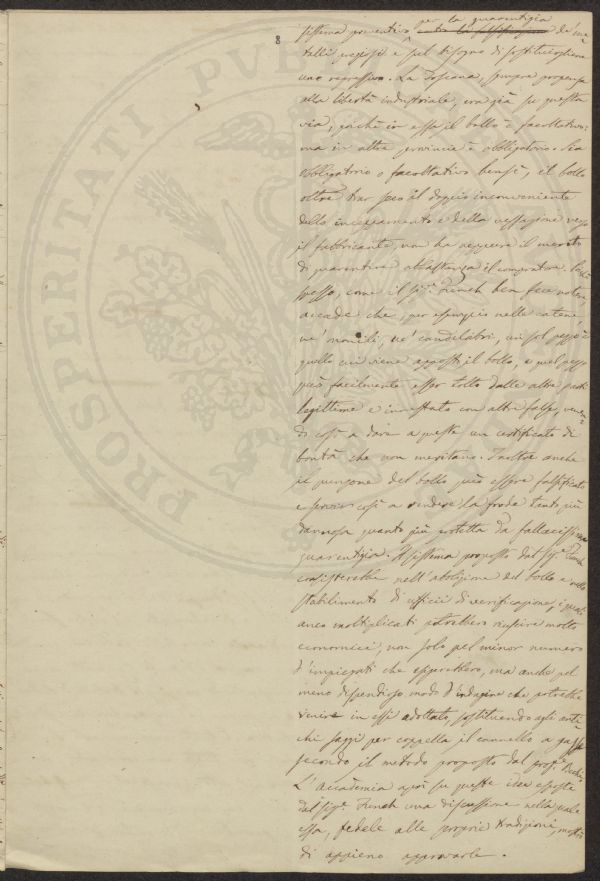 8
per la guarentigia
sistema preventivo contro la falsificazione de' me-
talli preziosi e sul bisogno di sostituirgliene
uno repressivo. La Toscana, sempre propensa
alla libertà industriale, era già su questa
via, poiché in essa il bollo è facoltativo;
ma in altre provincie è obbligatorio. Sia
obbligatorio o facoltativo bensì, il bollo
oltre trar seco il doppio inconveniente
dello inceppamento e della vessazione verso
il fabbricante, non ha neppure il merito
di guarentire abbastanza il compratore. Perchè
spesso, come il Sig.r French ben fece notare
accade che, per esempio nelle catene,
ne' monili, ne' candelabri, un sol pezzo è
quello cui viene apposto il bollo, e quel pezzo
può facilmente esser tolto dalle altre parti
legittime e innestato con altre false, venen-
do così a dare a queste un certificato di
bontà che non meritano. Inoltre anche
il punzone del bollo può essere falsificato
e servir così a rendere la frode tanto più
dannosa quanto più protetta da fallacissima
guarentigia. Il sistema proposto dal Sig.r French
consisterebbe nell'abolizione del bollo e nello
stabilimento di ufficii di verificazione, i quali
anco moltiplicati potrebbero riuscire molto
economici, non solo pel minor numero
d'impiegati che esigerebbero, ma anche pel
meno dispendioso modo d'indagine che potrebbe
venire in essi adottato, sostituendo agli anti-
chi saggi per coppella il cannello a gasse
secondo il metodo proposto dal prof.e Bechi.
L'Accademia aprì su queste idee esposte
dal Sig.r French una discussione nella quale
essa, fedele alle proprie tradizioni, mostrò
di appieno approvarle.
PROSPERITATI PUBL